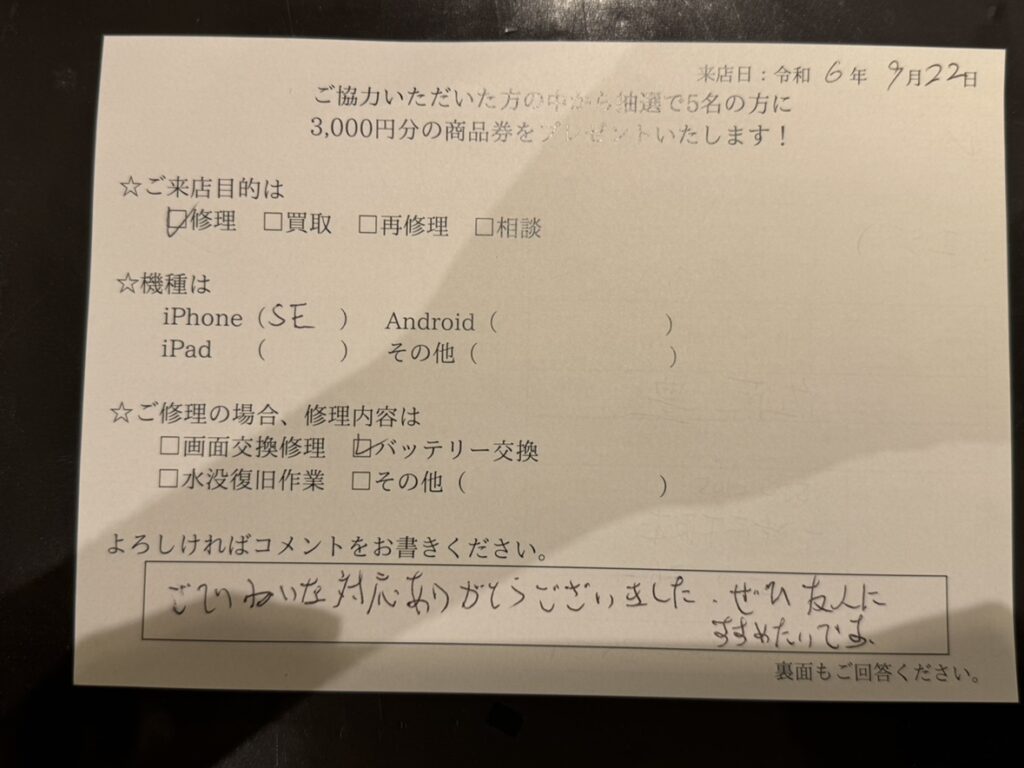 来店日：令和 6 年 9月22日
ご協力いただいた方の中から抽選で5名の方に
3,000円分の商品券をプレゼントいたします！
☆ご来店目的は
☑修理 □買取 □再修理 □相談
☆機種は
iPhone（SE ） Android（ ）
iPad （ ） その他（ ）
☆ご修理の場合、修理内容は
□画面交換修理 ☑バッテリー交換
□水没復旧作業 □その他（ ）
よろしければコメントをお書きください。
ごていねいな対応ありがとうございました。ぜひ友人に
すすめたいです。
裏面もご回答ください。